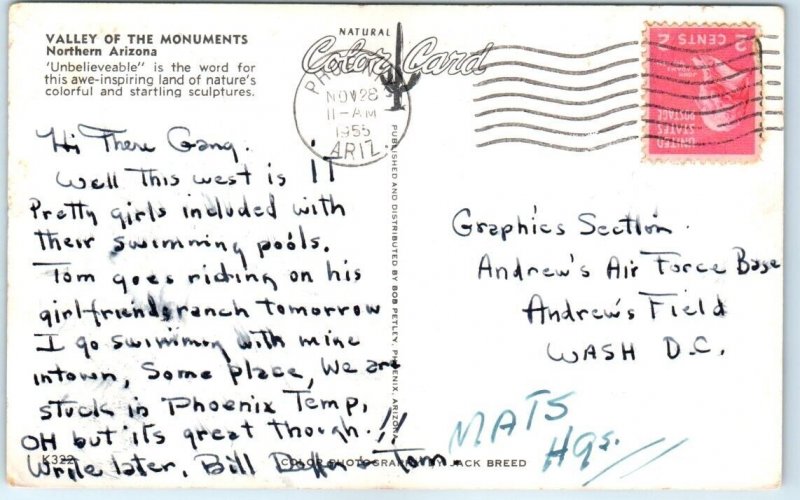 VALLEY OF THE MONUMENTS
Northern Arizona
'Unbelieveable" is the word for
this awe-inspiring land of nature's
colorful and startling sculptures.
Hi There Gang.
Well This west is IT
Pretty girls included with
their swimming pools.
Tom goes riding on his
girlfriends ranch tomorrow
I go swimming with mine
intown, Some place, We are
stuck in Phoenix Temp,
OH but it's great though.!!
Write later, Bill & Tom.
K322
COLOR PHOTOGRAPH BY JACK BREED
NATURAL
Color Card
PUBLISHED AND DISTRIBUTED BY BOB PETLEY, PHOENIX, ARIZONA
NOV 28
11-AM
1955
ARIZ.
2 CENTS 2
UNITED
STATES
POSTAGE
Graphics Section.
Andrew's Air Force Base
Andrew's Field
WASH D.C.
MATS
Hqs.